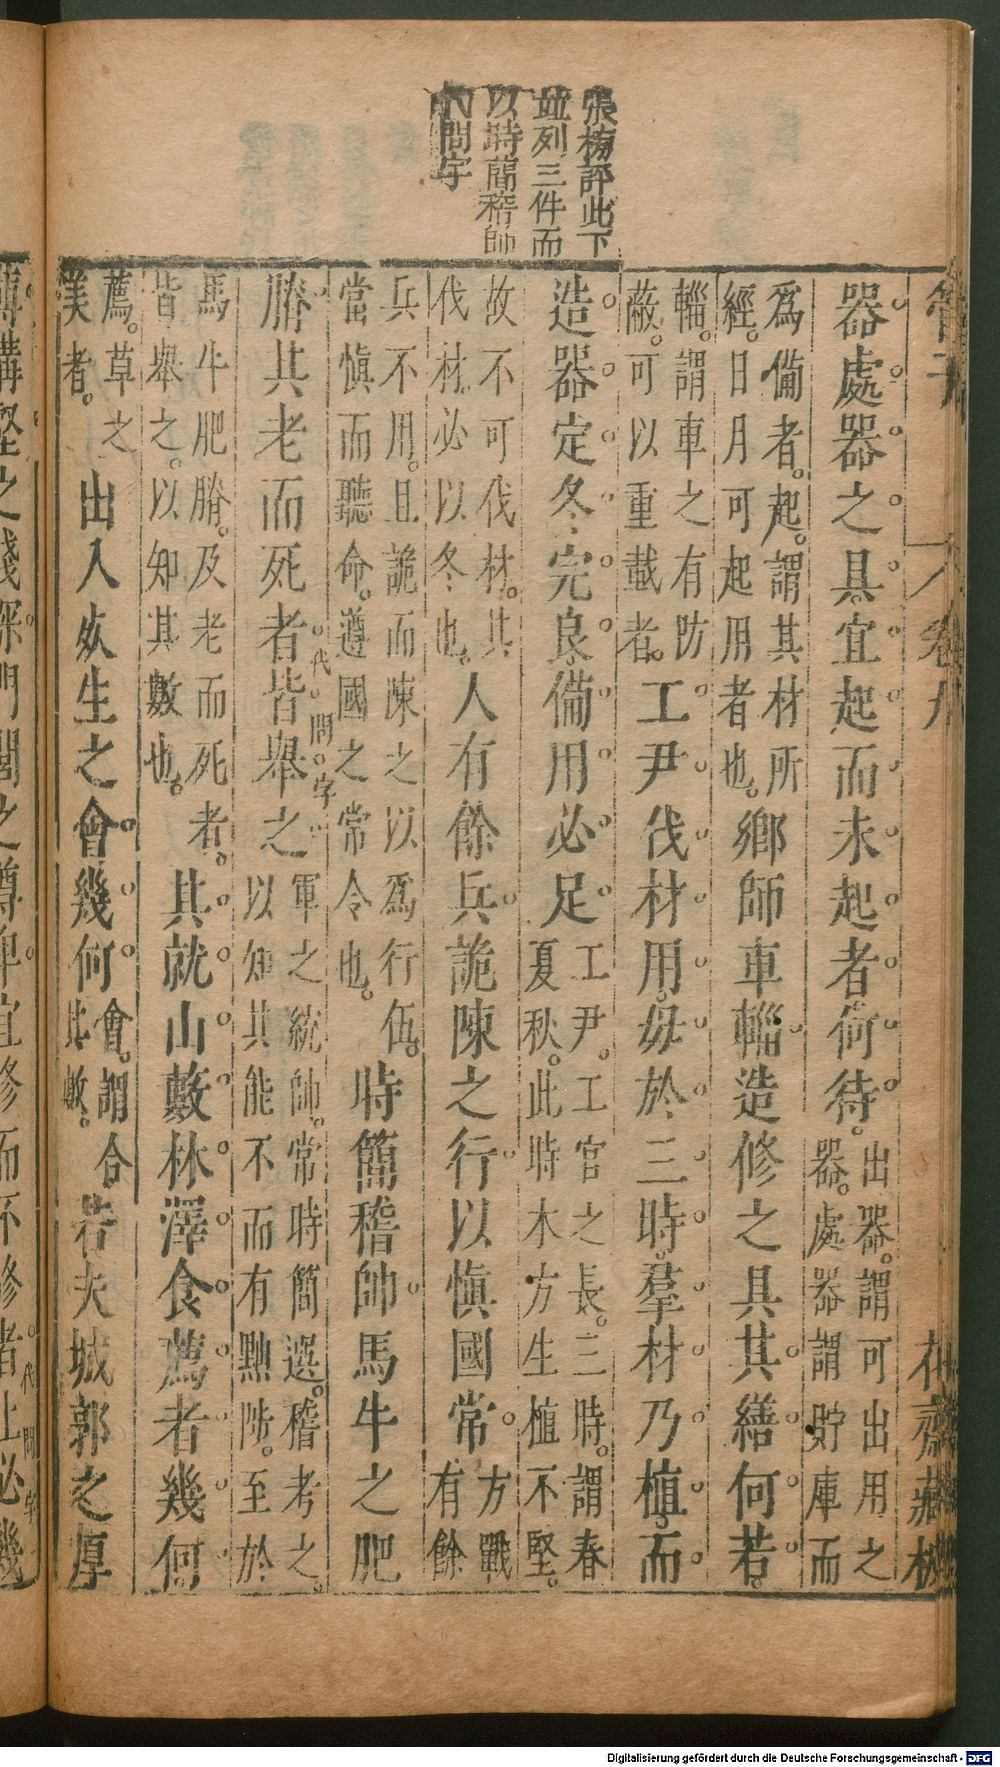 張榜評此下
並列三件而
以時簡稽帥
代問字
管子 卷九 花齋藏板
器處器之具宜起而未起者何待。出器。謂可出用之器。處器謂貯庫而
爲備者。起。謂其材所經。日月可起用者也。鄉師車輜造修之具其繕何若。
輜。謂車之有防蔽。可以重載者。工尹伐材用。毋於三時。羣材乃植。而
造器定冬完良備用必足工尹。工官之長。三時。謂春夏秋。此時木方生植不堅。
故不可伐材。其伐材必以冬也。人有餘兵詭陳之行以愼國常方戰有餘
兵不用。且詭而陳之以爲行伍。當愼而聽命。遵國之常令也。時簡稽帥馬牛之肥
膌其老而死者皆舉之軍之統帥。常時簡選。稽考之。以知其能不而有黜陟。至於
代問字
馬牛肥膌。及老而死者。皆舉之。以知其數也。其就山藪林澤食薦者幾何
薦。草之美者。出入死生之會幾何會。謂合其數。若夫城郭之厚
薄溝壑之淺深門閭之尊卑宜修而不修者上必幾
代問字
Digitalisierung gefördert durch die Deutsche Forschungsgemeinschaft - DFG